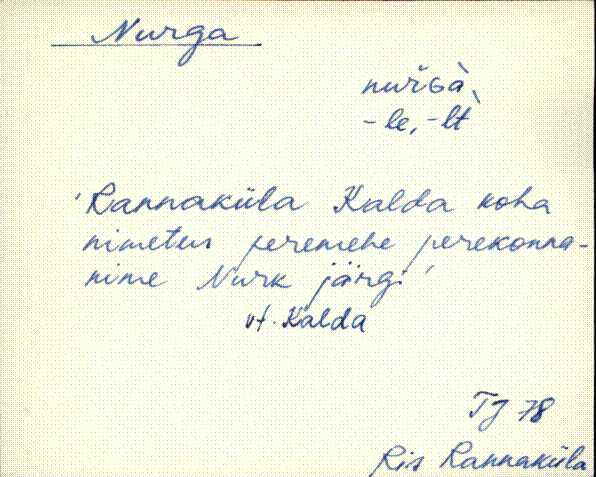 Nurga
nuřGà,
-le, -lt̀
'Rannaküla Kalda koha
nimetus peremehe perekonna-
nime Nurk järgi'
vt. Kalda
TJ 78
Ris Rannaküla